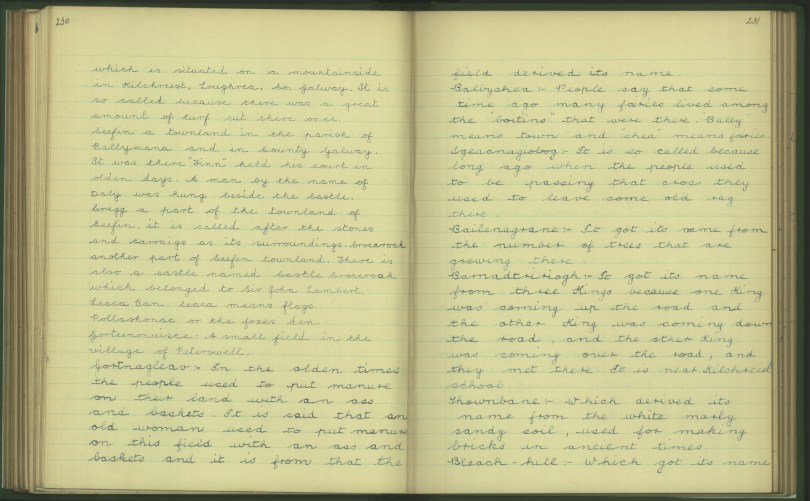 230
which is situated on a mountainside
in Kilchreest, Loughrea, Co. Galway. It is
so called because there was a great
amount of turf cut there once.
Seefin a townland in the parish of
Ballymana and in County Galway.
It was there "Finn" held his court in
olden days. A man by the name of
Daly was hung beside the castle.
Cregg a part of the townland of
Seefin, it is called after the stones
and carraigs as its surroundings.
another part of Seefin townland. There is
also a castle named castle
which belonged to Sir John Lambert.
Lesca Ban lesca means flags.
or the foxes den.
A small field in the
village of Peterswell.
Gortnagleav:- In the olden times
the people used to put manure
on their land with an ass
and baskets. It is said that an
old woman used to put manure
on this field with an ass and
baskets and it is from that the
231
field derived its name.
Ballyshea:- People say that some
time ago many faries lived among
the "boitins" that were there. Bally
means town and "shea" means faries.
It is so called because
long ago when the people used
to be passing that cros they
used to leave some old rag
there.
Bailenagrane:- It got its name from
the number of trees that are
growing there.
It got its name
from three Kings because one King
was coming up the road and
the other King was coming down
the road, and the other King
was coming over the road, and
they met there. It is near Kilchreest
school.
Which derived its
name from the white marly
sandy soil, used for making
bricks in ancient times.
Bleach-hill:- Which got its name